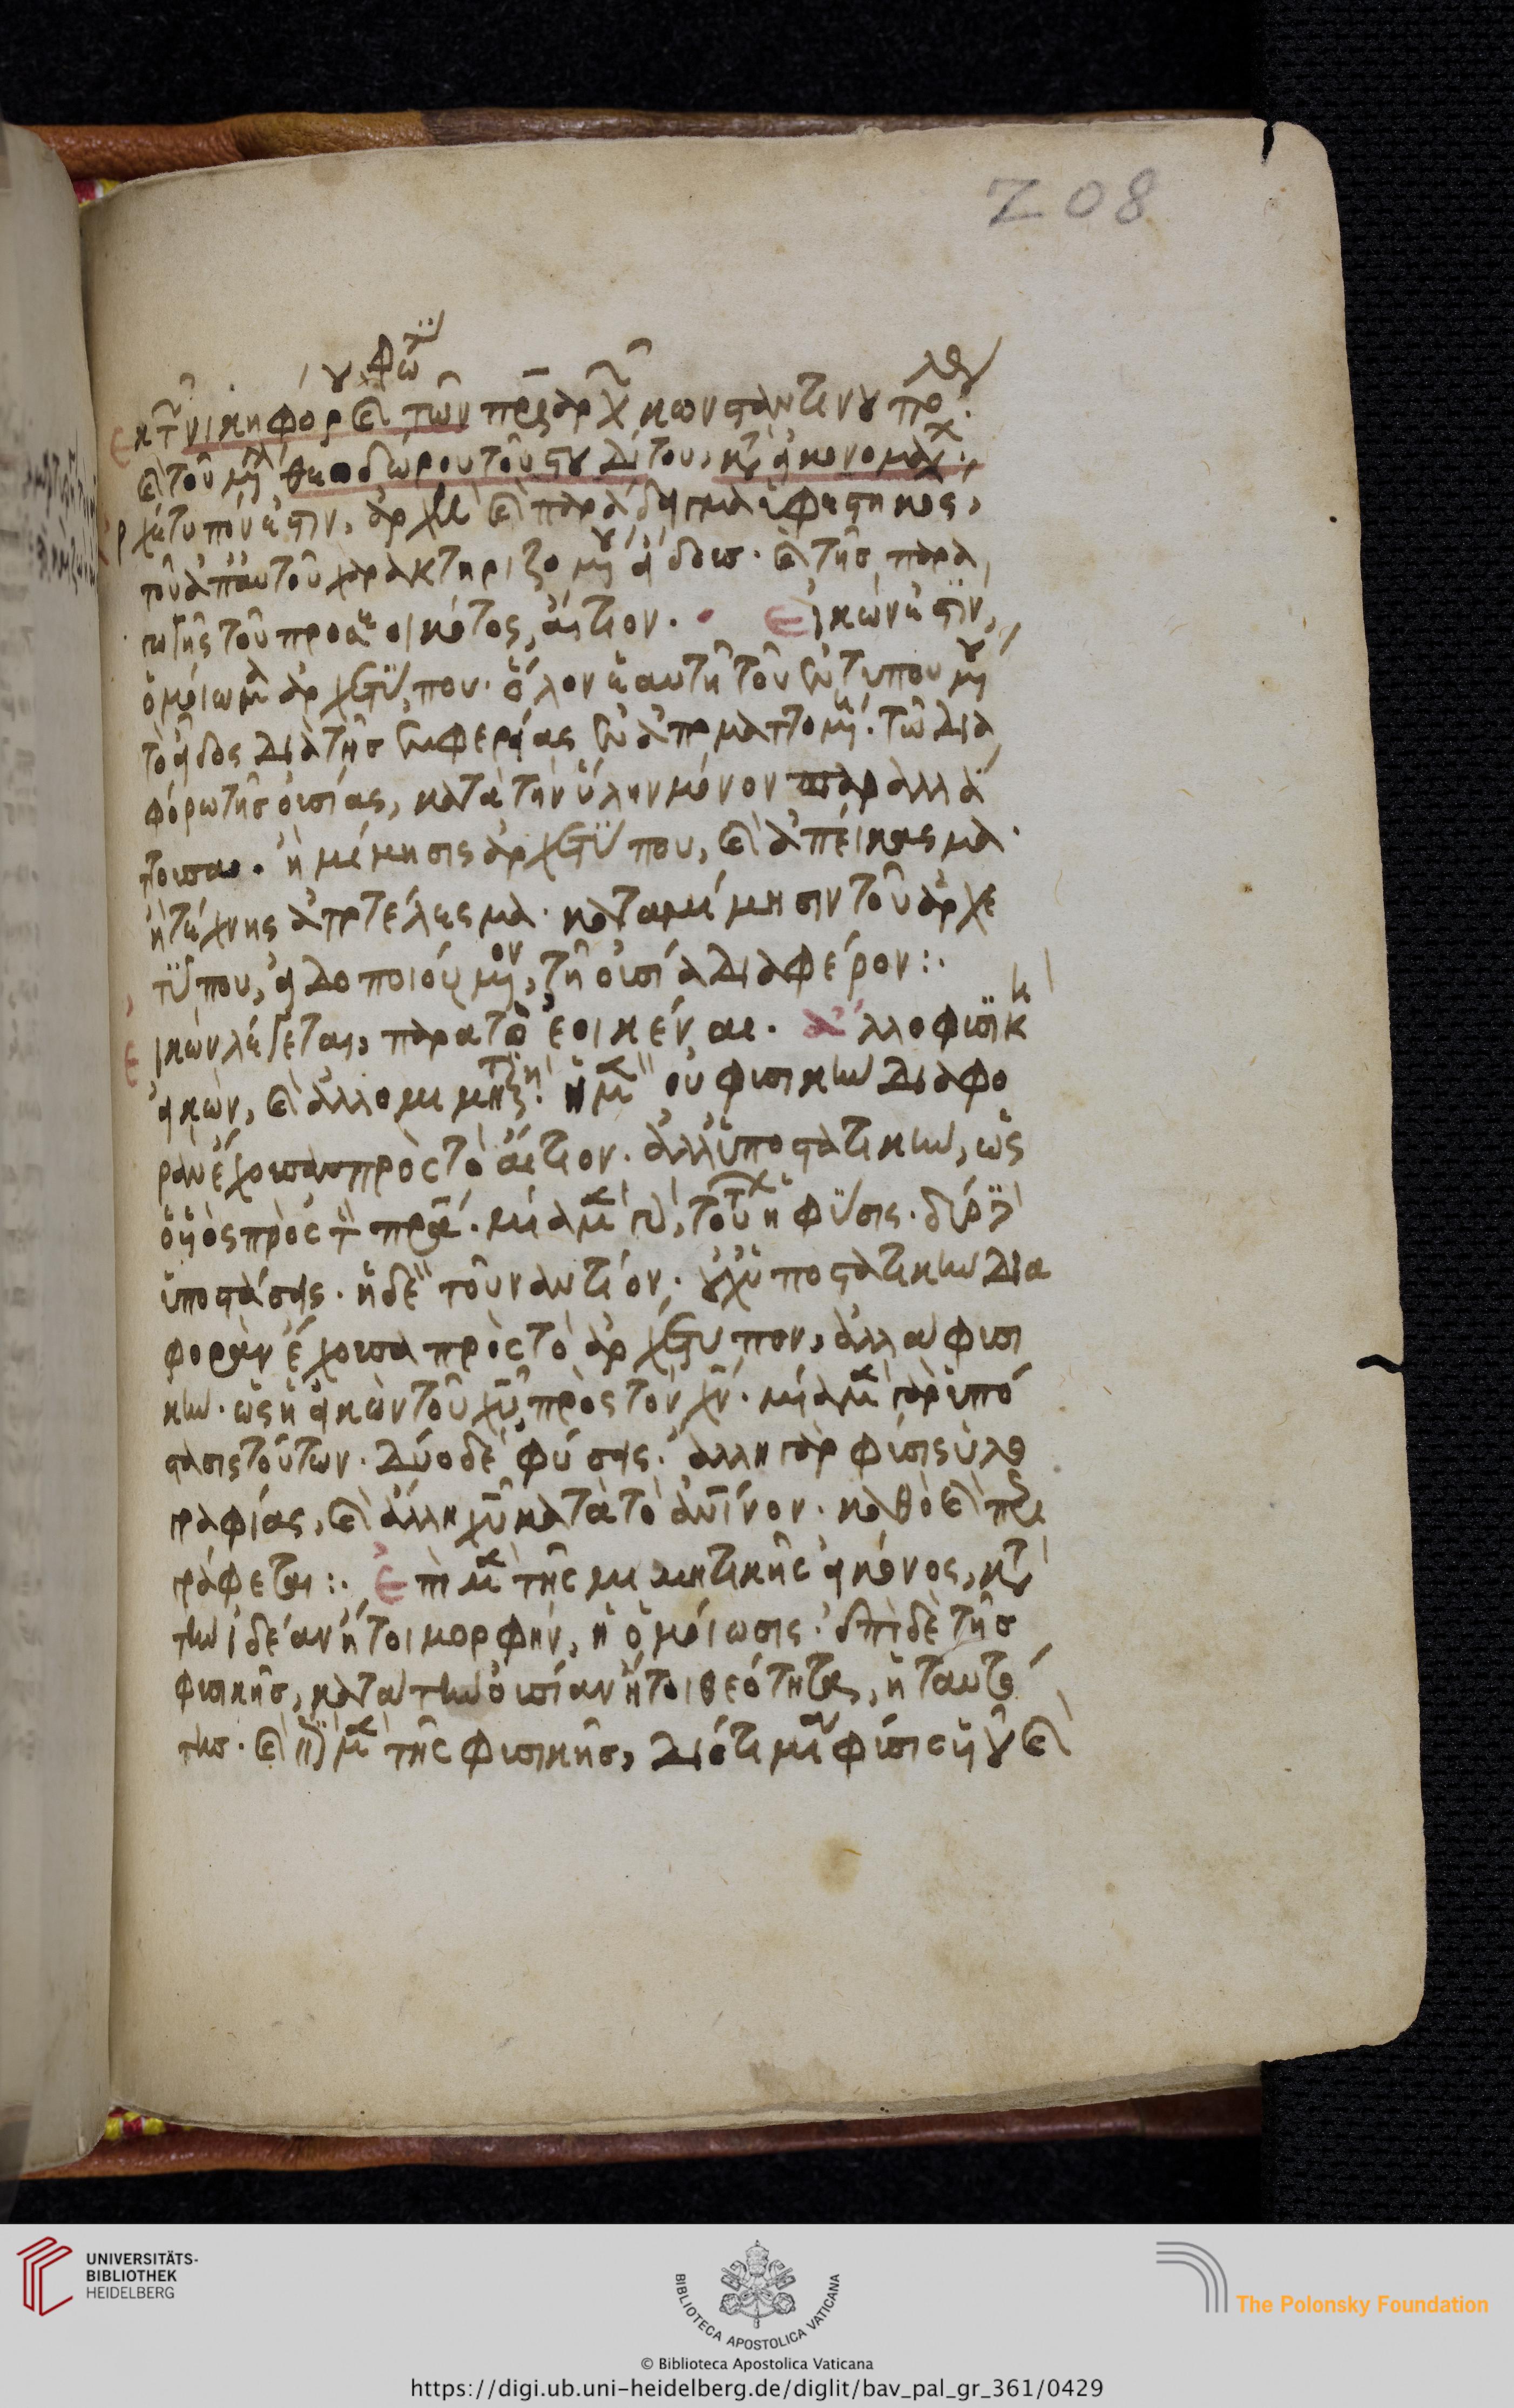 208
Ἐκ τῶν νικηφόρου καὶ φωτίου τῶν πριαρχῶν κωνσταντινουπόλεως
καὶ τοῦ μεγάλου θεοδώρου τοῦ στουδίτου, κατὰ εἰκονομάχων
ἀρχέτυπόν ἐστιν, ἀρχὴ καὶ παράδειγμα ὑφεστηκὸς,
τοῦ ἀπ' αὐτοῦ χαρακτηριζομένου εἴδους. καὶ τῆς παρα
γωγῆς τοῦ προσεοικότος, αἴτιον. Εἰκών ἐστιν,
ὁμοίωμα ἀρχετύπου. ὅλον ἐν αὐτῇ τοῦ ἐντυπουμένου
τὸ εἶδος διὰ τῆς ἐμφερείας ἐναποματτομένη. τῷ δια
φόρῳ τῆς οὐσίας, κατὰ τὴν ὕλην μόνον παραλλά
τουσα. ἢ μίμησις ἀρχετύπου, καὶ ἀπείκασμα.
ἢ τέχνης ἀποτέλεσμα. κατὰ μίμησιν τοῦ ἀρχε
τύπου, εἰδοποιούμενον, τῇ οὐσίᾳ διαφέρον:.
Εἰκὼν λέγεται, παρὰ τὸ ἐοικέναι. ἄλλο φυσικὴ
εἰκὼν, καὶ ἄλλο μιμητική. ἡ μὲν οὐ φυσικὴν διαφο
ρὰν ἔχουσα πρὸς τὸ αἴτιον. ἀλλ' ὑποστατικὴν, ὡς
ὁ υἱὸς πρὸς τὸν πρα. μία μὲν γὰρ, τούτων ἡ φύσις. δύο δὲ
ὑποστάσεις. ἡ δὲ τοὐναντίον. οὐχ ὑποστατικὴν δια
φορὰν ἔχουσα πρὸς τὸ ἀρχέτυπον, ἀλλὰ φυσι
κὴν. ὡς ἡ εἰκὼν τοῦ χυ πρὸς τὸν χν. μία μὲν γὰρ ὑπό
στασις τούτων. δύο δὲ φύσεις. ἄλλη γὰρ φύσις ὑλο
γραφίας, καὶ ἄλλη χυ κατὰ τὸ ἀνινον. καθὸ καὶ περι
γράφεται:. Ἐπὶ μὲν τῆς μιμητικῆς εἰκόνος, κατὰ
τὴν ἰδέαν ἤτοι μορφὴν, ἡ ὁμοίωσις. ἐπὶ δὲ τῆς
φυσικῆς, κατὰ τὴν οὐσίαν ἤτοι θεότητα, ἡ ταυτό
της. καὶ ἐπὶ μὲν τῆς φυσικῆς, διότι μία φύσις υἱοῦ καὶ
UNIVERSITÄTS-
BIBLIOTHEK
HEIDELBERG
BIBLIOTECA APOSTOLICA VATICANA
The Polonsky Foundation
© Biblioteca Apostolica Vaticana
https://digi.ub.uni-heidelberg.de/diglit/bav_pal_gr_361/0429